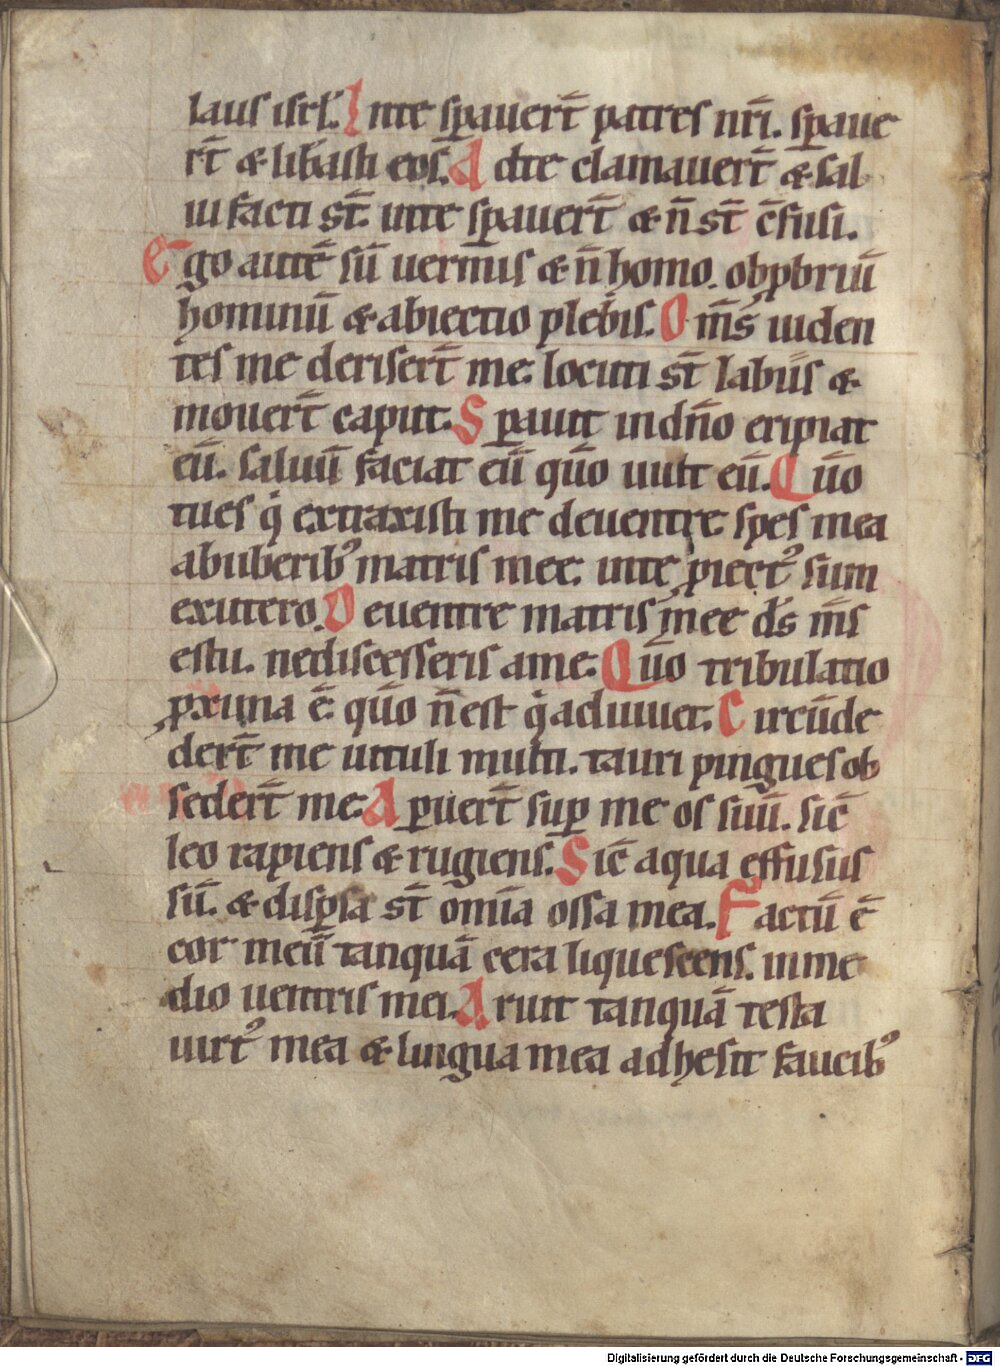 laus isrl̄. Inte sꝑauert̄ patres nr̄i. sꝑaue
rt̄ & lib̄asti eos. Adte clamauert̄ & sal
ui facti st̄. inte sꝑauert̄ & n̄ st̄ c̄fusi.
Ego autē sū uermis & n̄ homo. obꝓbriū
hominū & abiectio plebis. Om̄s uiden
tes me deriſert̄ me. locuti st̄ labiis &
mouert̄ caput. Sꝑauit indn̄o eripiat
eū. saluū faciat eū qūo uult eū. Qūo
tues q̇ extraxisti me deuentre spes mea
abuberibꝰ matris mee. inte ꝓiectꝰ sum
exutero. Deuentre matris mee ds̄ m̄s
estu. nediscesseris ame. Qūo tribulatio
ꝓxima ē. qūo n̄est q̇ adiuuet. Circūde
dert̄ me uituli multi. tauri pingues ob
sedert̄ me. Aꝑuert̄ suꝑ me os suū. sic̄
leo rapiens & rugiens. Sic̄ aqua effusus
sū. & disꝑsa st̄ om̄ia ossa mea. Factū ē
cor meū tanquā cera liquescens. inme
dio uentris mei. Aruit tanquā testa
uirtꝰ mea & lingua mea adhesit faucibꝰ
Digitalisierung gefördert durch die Deutsche Forschungsgemeinschaft - DFG